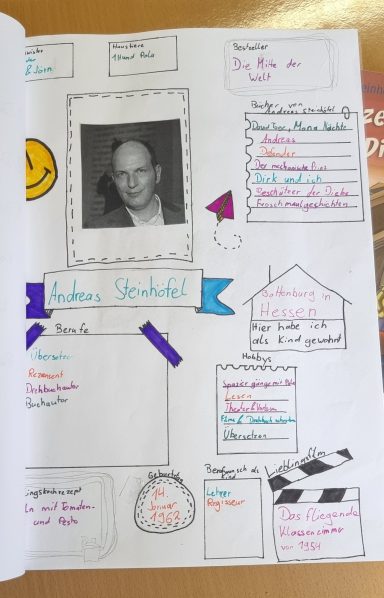 & Jörn
Haustiere
1 Hund Pola
Bestseller
Die Mitte der
Welt
Bücher von
Andreas Steinhöfel
Andreas
Defender
Der mechanische Prinz
Dirk und ich
Beschützer der Diebe
Froschmaulgeschichten
Andreas Steinhöfel
Battenburg in
Hessen
Hier habe ich
als Kind gewohnt
Berufe
Übersetzer
Rezensent
Drehbuchautor
Buchautor
Hobbys
Spaziergänge mit Pola
Lesen
Theater & Vorlesen
Filme & Drehbuch schreiben
Übersetzen
mit Tomaten-
und Pesto
Geburtstag
14.
Januar
1962
Berufswunsch als
Kind
Lehrer
Regisseur
Lieblingsfilm
Das fliegende
Klassenzimmer
von 1954